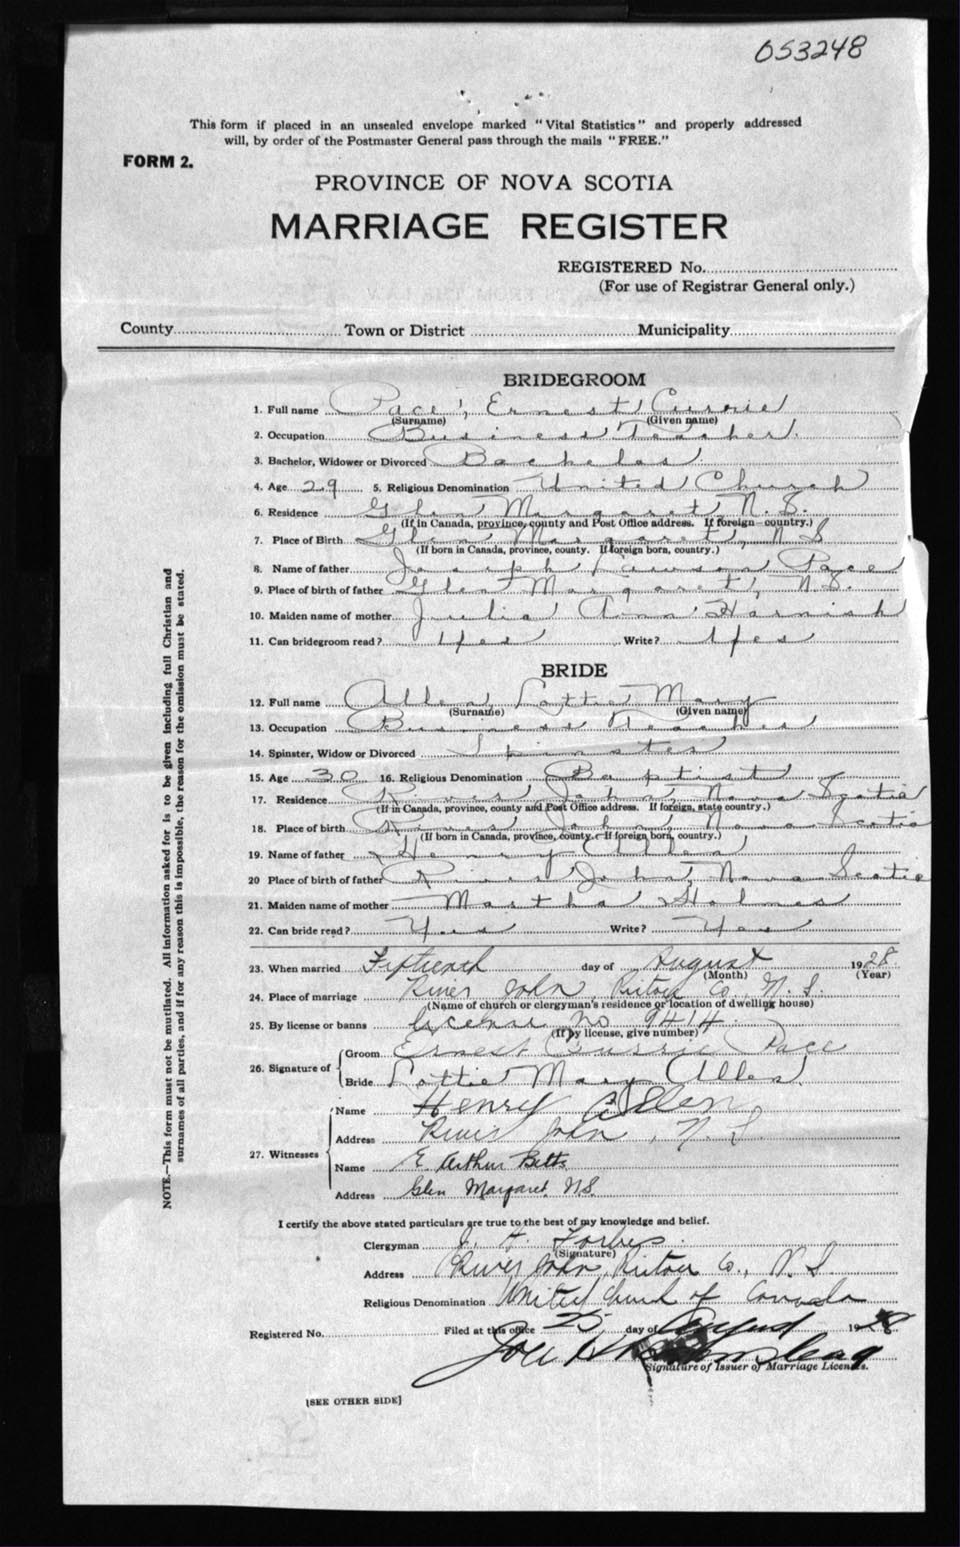 053248
This form if placed in an unsealed envelope marked "Vital Statistics" and properly addressed
will, by order of the Postmaster General pass through the mails "FREE."
FORM 2.
PROVINCE OF NOVA SCOTIA
MARRIAGE REGISTER
REGISTERED No.
(For use of Registrar General only.)
County Town or District Municipality
BRIDEGROOM
1. Full name Pace, Ernest Currie
(Surname) (Given name)
2. Occupation Business Teacher.
3. Bachelor, Widower or Divorced Bachelor
4. Age 29 5. Religious Denomination United Church
6. Residence Glen Margaret, N.S.
(If in Canada, province, county and Post Office address. If foreign country.)
7. Place of Birth Glen Margaret, N.S
(If born in Canada, province, county. If foreign born, country.)
8. Name of father Joseph Lawson Pace
9. Place of birth of father Glen Margaret, N.S.
10. Maiden name of mother Julia Ann Harnish
11. Can bridegroom read? Yes Write? Yes
BRIDE
12. Full name Allen, Lottie Mary
(Surname) (Given name)
13. Occupation Business Teacher
14. Spinster, Widow or Divorced Spinster
15. Age 30 16. Religious Denomination Baptist
17. Residence River John, Nova Scotia
(If in Canada, province, county and Post Office address. If foreign, state country.)
18. Place of birth River John, Nova Scotia
(If born in Canada, province, county. If foreign born, country.)
19. Name of father Henry Allen
20 Place of birth of father River John, Nova Scotia
21. Maiden name of mother Martha Holmes
22. Can bride read? Yes Write? Yes
23. When married Fifteenth day of August 1928
(Month) (Year)
24. Place of marriage River John, Pictou Co., N.S.
(Name of church or clergyman's residence or location of dwelling house)
25. By license or banns License No 9414.
(If by license, give number)
26. Signature of Groom Ernest Currie Pace
Bride Lottie Mary Allen
27. Witnesses Name Henry Allen
Address River John, N.S.
Name E. Arthur Betts
Address Glen Margaret N.S.
I certify the above stated particulars are true to the best of my knowledge and belief.
Clergyman J. H. Forbes.
(Signature)
Address River John, Pictou Co., N.S
Religious Denomination United Church of Canada
Registered No. Filed at this office 25 day of August 1928
Signature of Issuer of Marriage Licenses.
[SEE OTHER SIDE]
NOTE.—This form must not be mutilated. All information asked for is to be given including full Christian and
surnames of all parties, and if for any reason this is impossible, the reason for the omission must be stated.